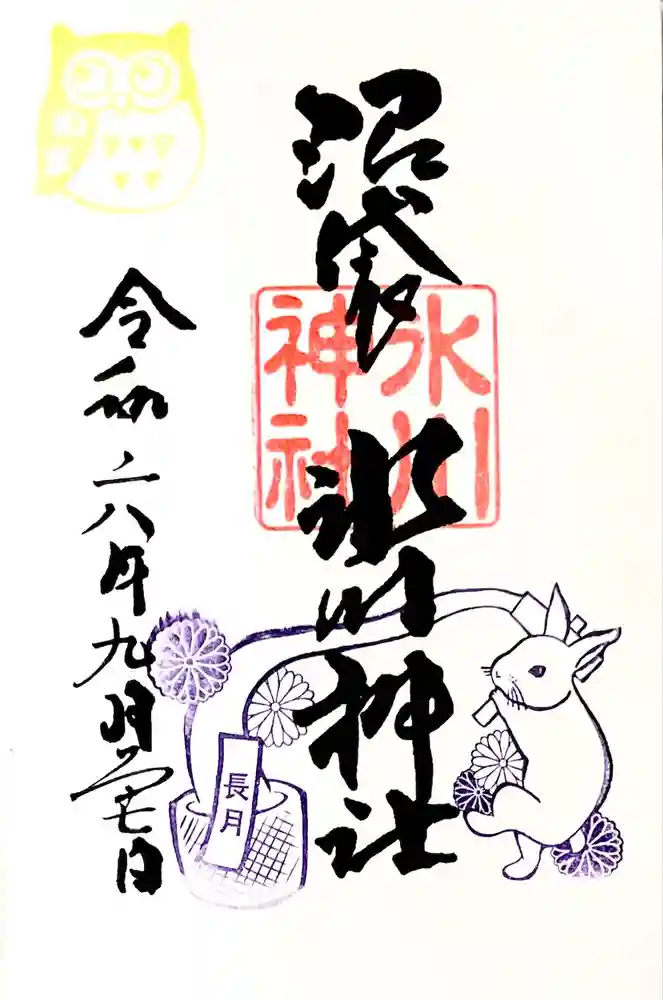 沼袋
氷川神社
氷川
神社
令和六年九月二七日
長月